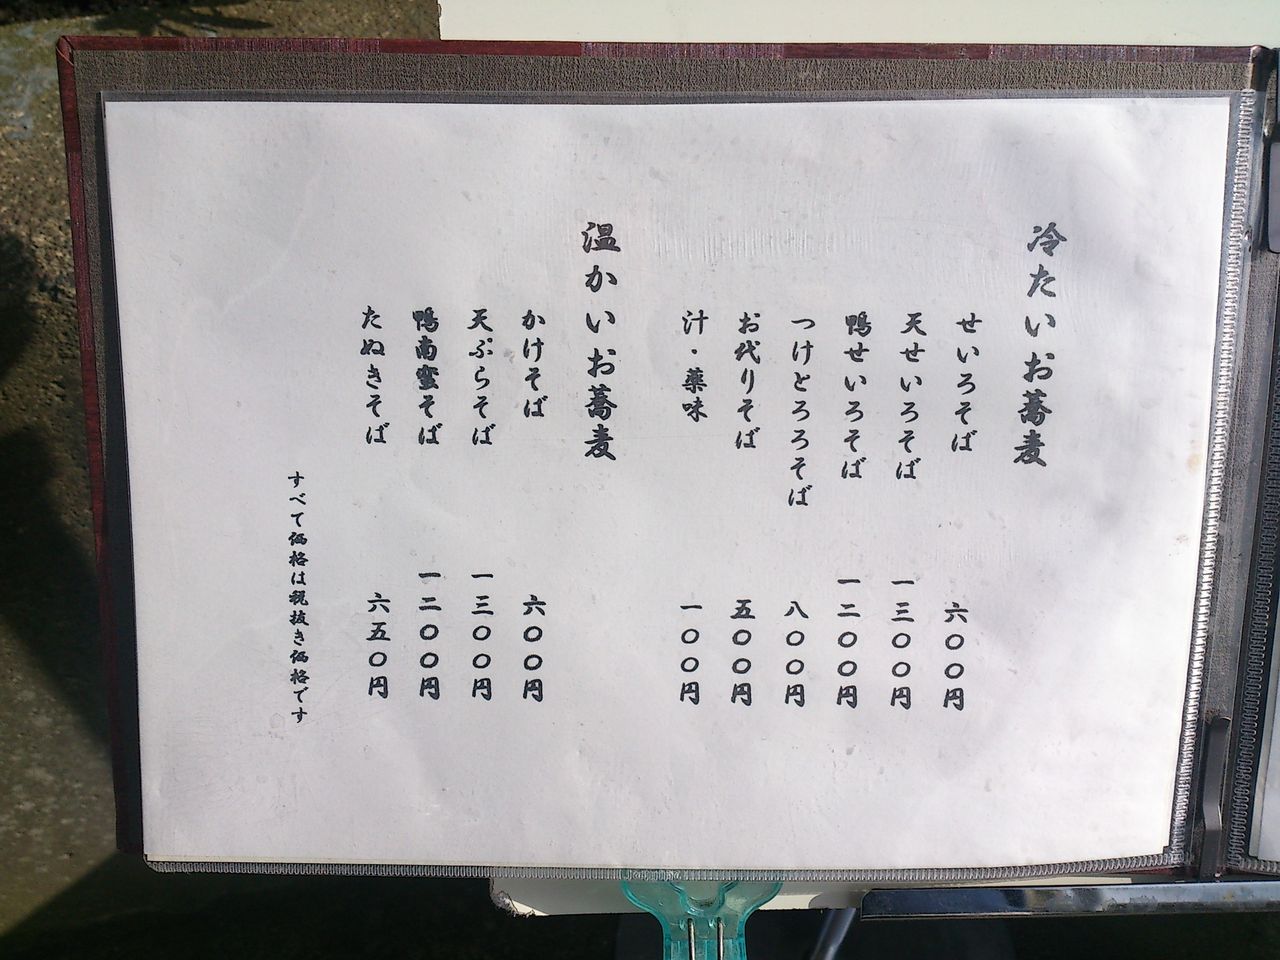 冷たいお蕎麦
せいろそば 六〇〇円
天せいろそば 一三〇〇円
鴨せいろそば 一二〇〇円
つけとろろそば 八〇〇円
お代りそば 五〇〇円
汁・薬味 一〇〇円
温かいお蕎麦
かけそば 六〇〇円
天ぷらそば 一三〇〇円
鴨南蛮そば 一二〇〇円
たぬきそば 六五〇円
すべて価格は税抜き価格です